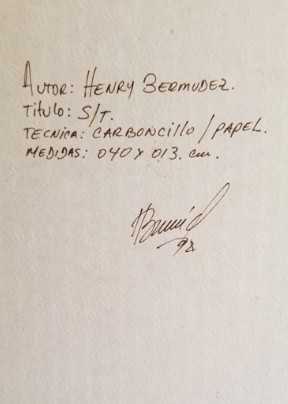 AUTOR: HENRY BERMUDEZ.
Titulo: S/T.
TECNICA: CARBONCillo / PAPEL.
MEDIDAS: 040 X 013. cm.